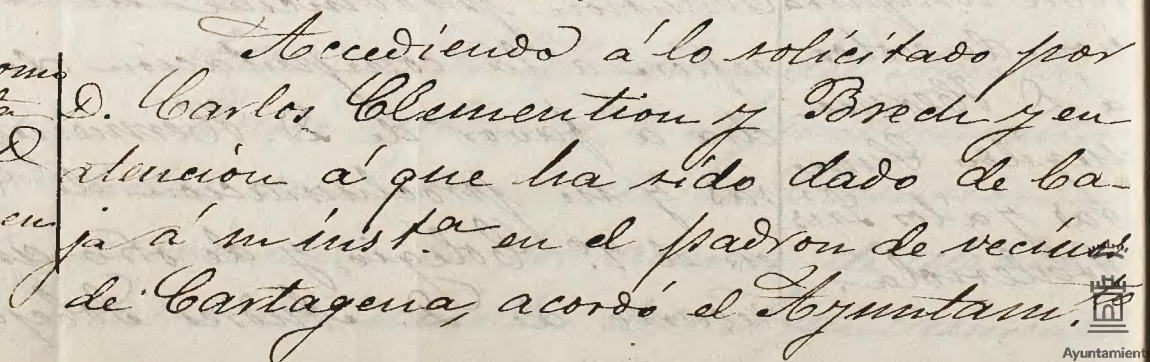 Accediendo á lo solicitado por
D. Carlos Clemention y Brech y en
atencion á que ha sido dado de ba-
ja á su inst.a en el padron de vecinos
de Cartagena, acordó el Ayuntam.to
Ayuntamient